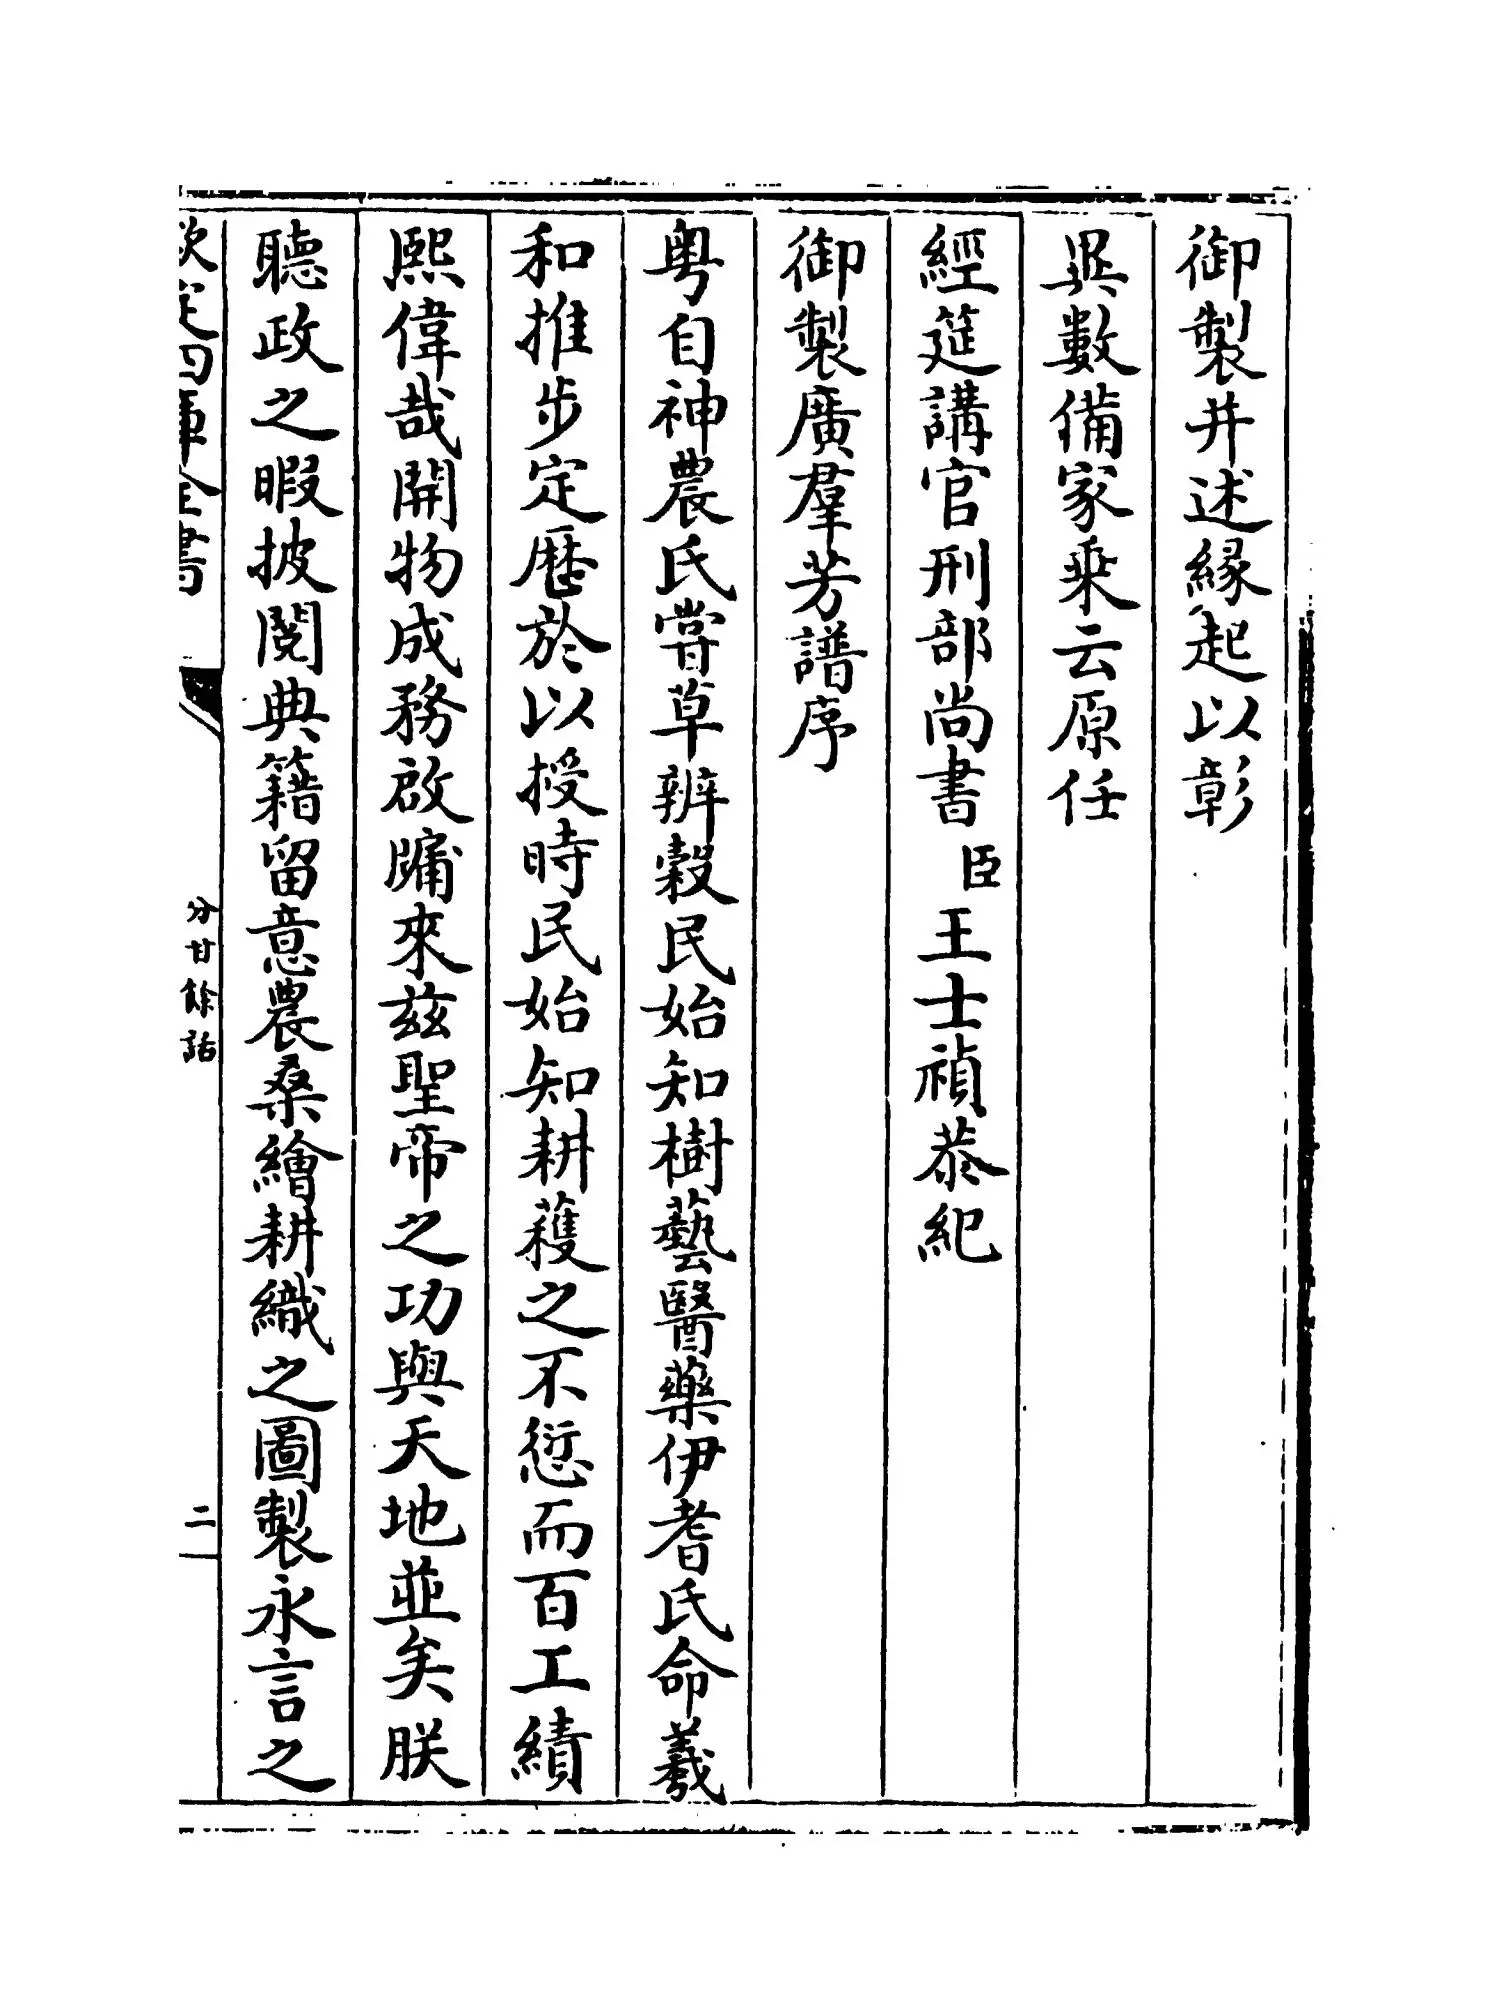 御製并述緣起以彰
異數備家乘云原任
經筵講官刑部尚書臣王士禎恭紀
御製廣羣芳譜序
粤自神農氏嘗草辨穀民始知樹藝醫藥伊耆氏命羲
和推步定厯於以授時民始知耕穫之不愆而百工績
熙偉哉開物成務啟牖來兹聖帝之功與天地並矣朕
聽政之暇披閱典籍留意農桑繪耕織之圖製永言之
欽定四庫全書
分甘餘話
二